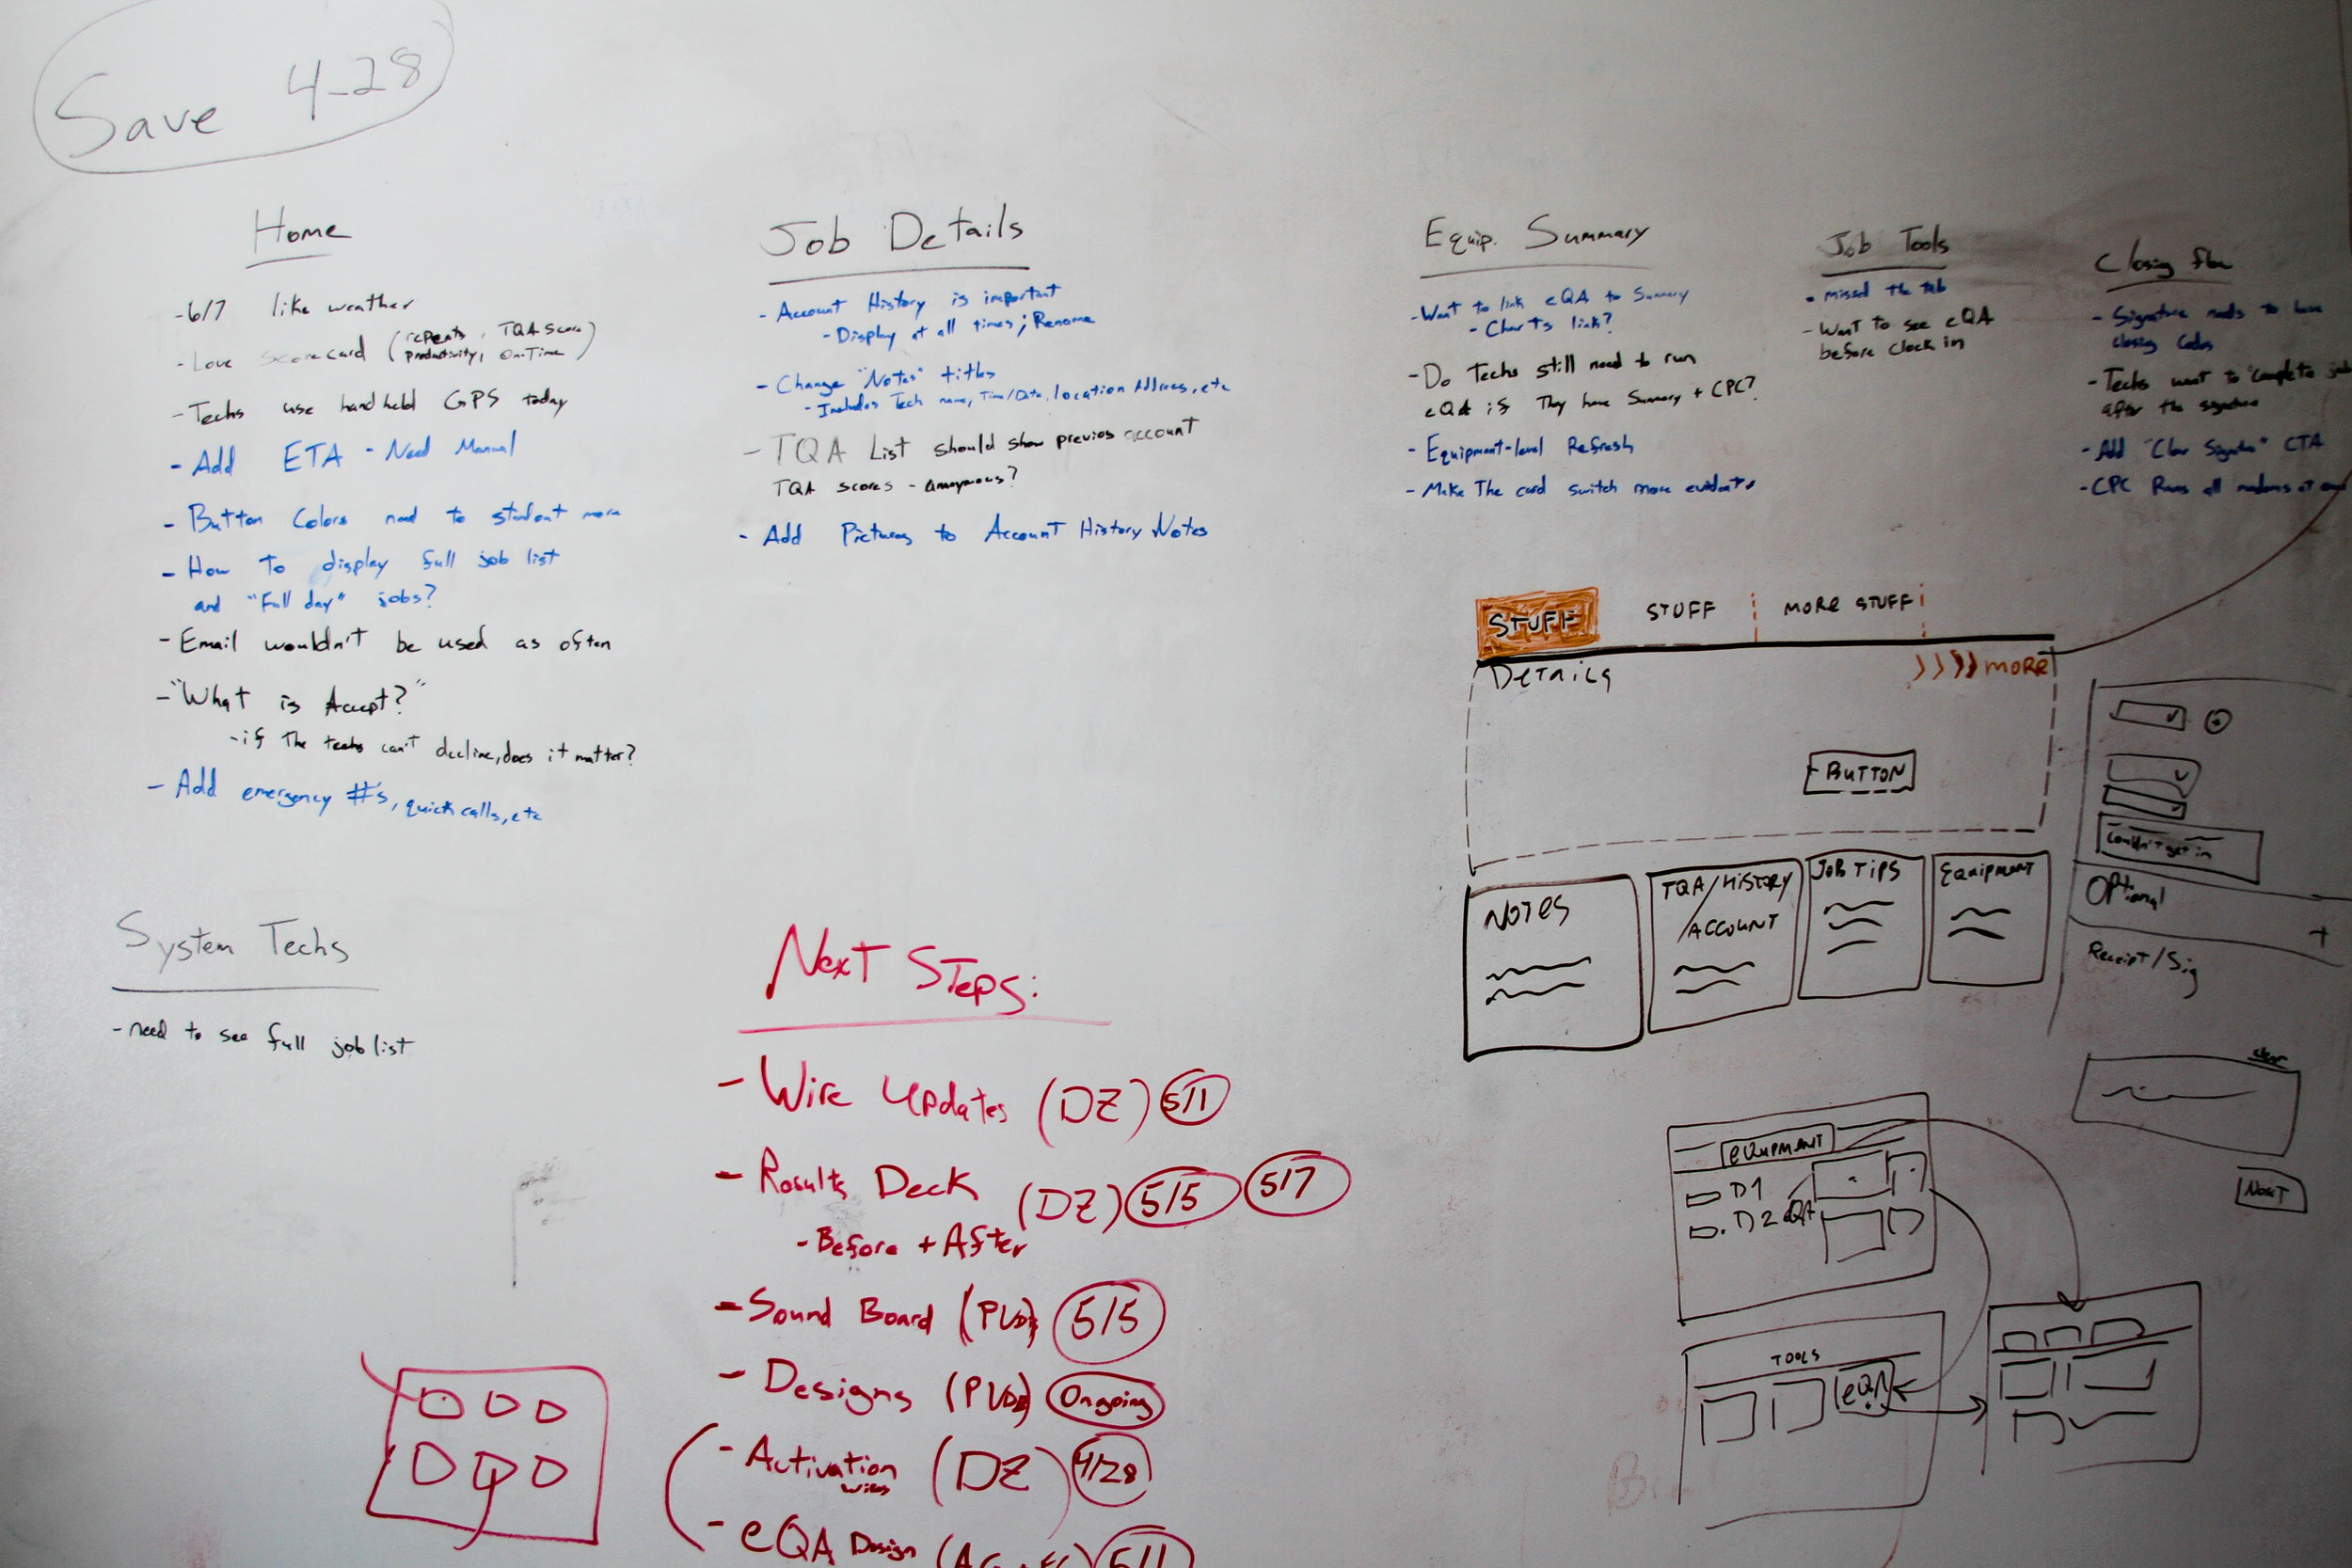 Save 4-28
Home
-6/7 like weather
-Love scorecard (repeats, TQA score, productivity, On-Time)
-Techs use handheld GPS today
-Add ETA - Need Manual
-Button Colors need to standout more
-How To display full job list
and "Full day" jobs?
-Email wouldn't be used as often
-"What is Accept?"
-if The techs can't decline, does it matter?
-Add emergency #'s, quick calls, etc
System Techs
-need to see full job list
Job Details
-Account History is important
-Display at all times; Rename
-Change "Notes" titles
-Includes Tech name, Time/Date, location Address, etc
-TQA List should show previos account
TQA scores - Anonymous?
-Add Pictures to Account History Notes
Next Steps:
-Wire Updates (DZ) 5/1
-Results Deck (DZ) 5/5 5/7
-Before + After
-Sound Board 5/5
-Designs Ongoing
-Activation (DZ) 4/28
wires
-eQA Design 5/1
Equip. Summary
-Want to link eQA to Summary
-Charts link?
-Do Techs still need to run
eQA if They have Summary + CPC?
-Equipment-level Refresh
-Make The card switch more evident
Job Tools
-missed the tab
-Want to see eQA
before clock in
Closing flow
-Signature needs to have
closing codes
-Techs want to "complete" job
after the signature
-Add "Clear Signature" CTA
-CPC Runs all modems at
STUFF STUFF MORE STUFF
Details MORE
BUTTON
NOTES
TQA/HISTORY
/ACCOUNT
JOB TIPS
EQUIPMENT
Couldn't get in
OPtional
+
Receipt/Sig
clear
Next
EQUIPMENT
D1
D2 eQA
TOOLS
eQA